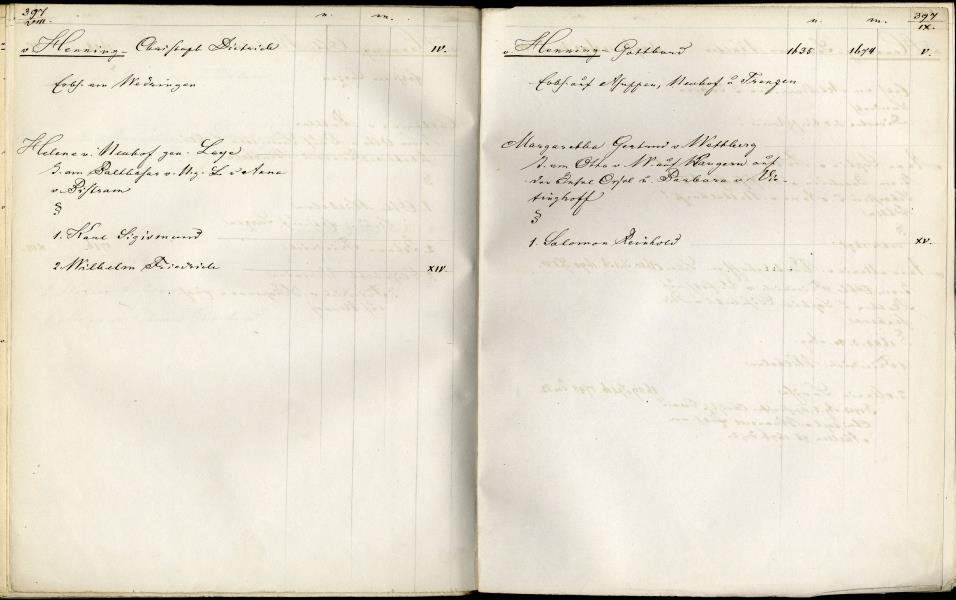 397
VIII.
n. m.
v Henning - Christoph Dietrich IV.
Erbh. am Wedringen
Helene v. Neuhof gen. Leye
T. am Balthasar v. Ng. L. u Anna
v. Pistram
§
1. Karl Sigismund
2. Wilhelm Friedrich XIV.
n. m. 397
IX.
v. Henning - Gotthard 1635 1674 V.
Erbh. auf Asuppen, Neuhof u
Margaretha Gertrud v Wettberg
T. am Otto v W. auf Kangern auf
der Insel Oesel u. Barbara v. Vie-
tinghoff
§
1. Salomon Reinhold XV.